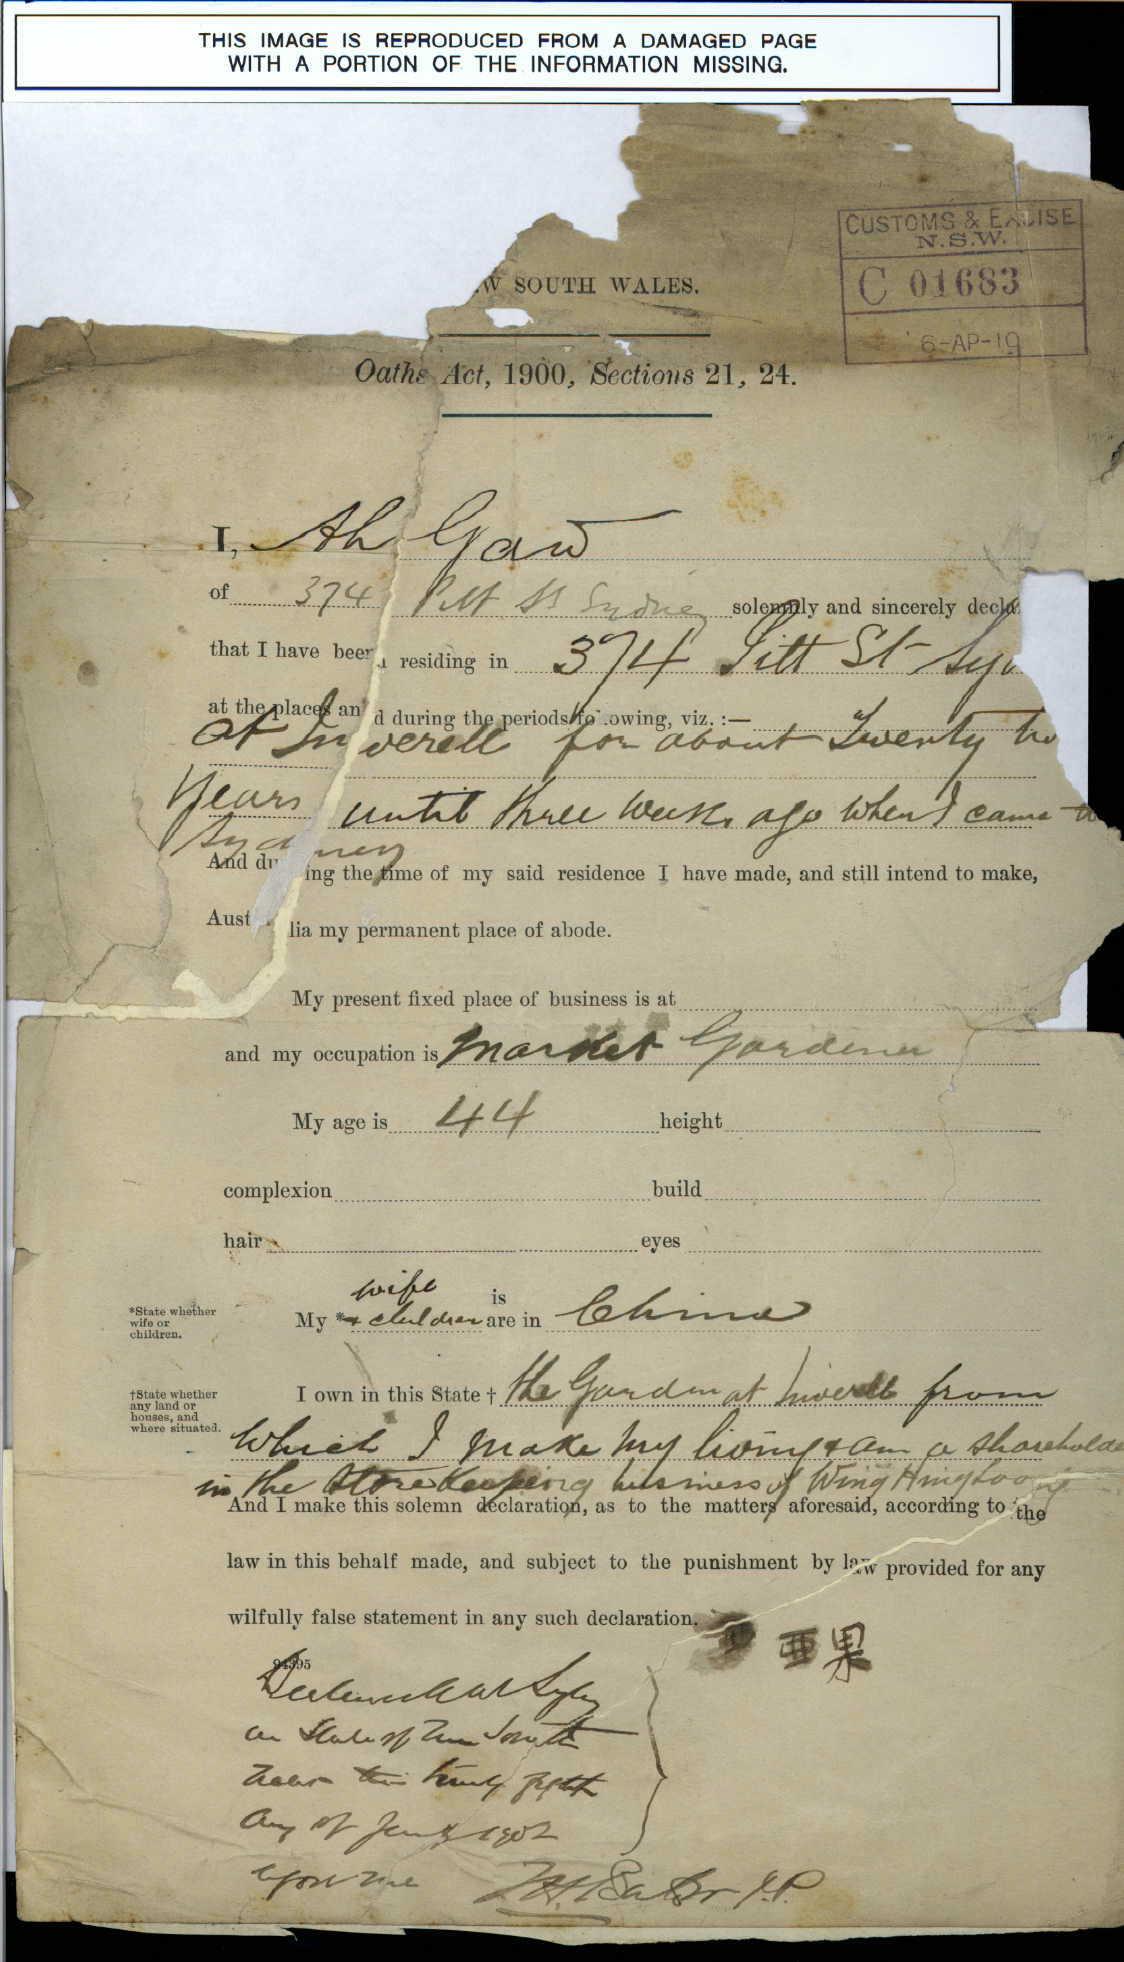 THIS IMAGE IS REPRODUCED FROM A DAMAGED PAGE
WITH A PORTION OF THE INFORMATION MISSING.
CUSTOMS & EXCISE
N.S.W.
C 01683
6-AP-19
W SOUTH WALES.
Oaths Act, 1900, Sections 21, 24.
I, Ah Gaw
of 374 Pitt St Sydney solemnly and sincerely decla
that I have been residing in 374 Pitt St Syd
at the places and during the periods following, viz. :—
at Inverell for about Twenty two
years until three weeks ago when I came to
Sydney
And during the time of my said residence I have made, and still intend to make,
Australia my permanent place of abode.
My present fixed place of business is at
and my occupation is Market Gardener
My age is 44 height
complexion build
hair eyes
wife is
My *& children are in China
*State whether
wife or
children.
I own in this State † the Garden at Inverell from
†State whether
any land or
houses, and
where situated.
which I make my living & am a shareholde
in the Storekeeping business of Wing Hing Loong
And I make this solemn declaration, as to the matters aforesaid, according to the
law in this behalf made, and subject to the punishment by law provided for any
wilfully false statement in any such declaration.
亞果
94395
Declared at Sydney
in State of New South
Wales this twenty eighth
day of Jany 1902
before me J.P.